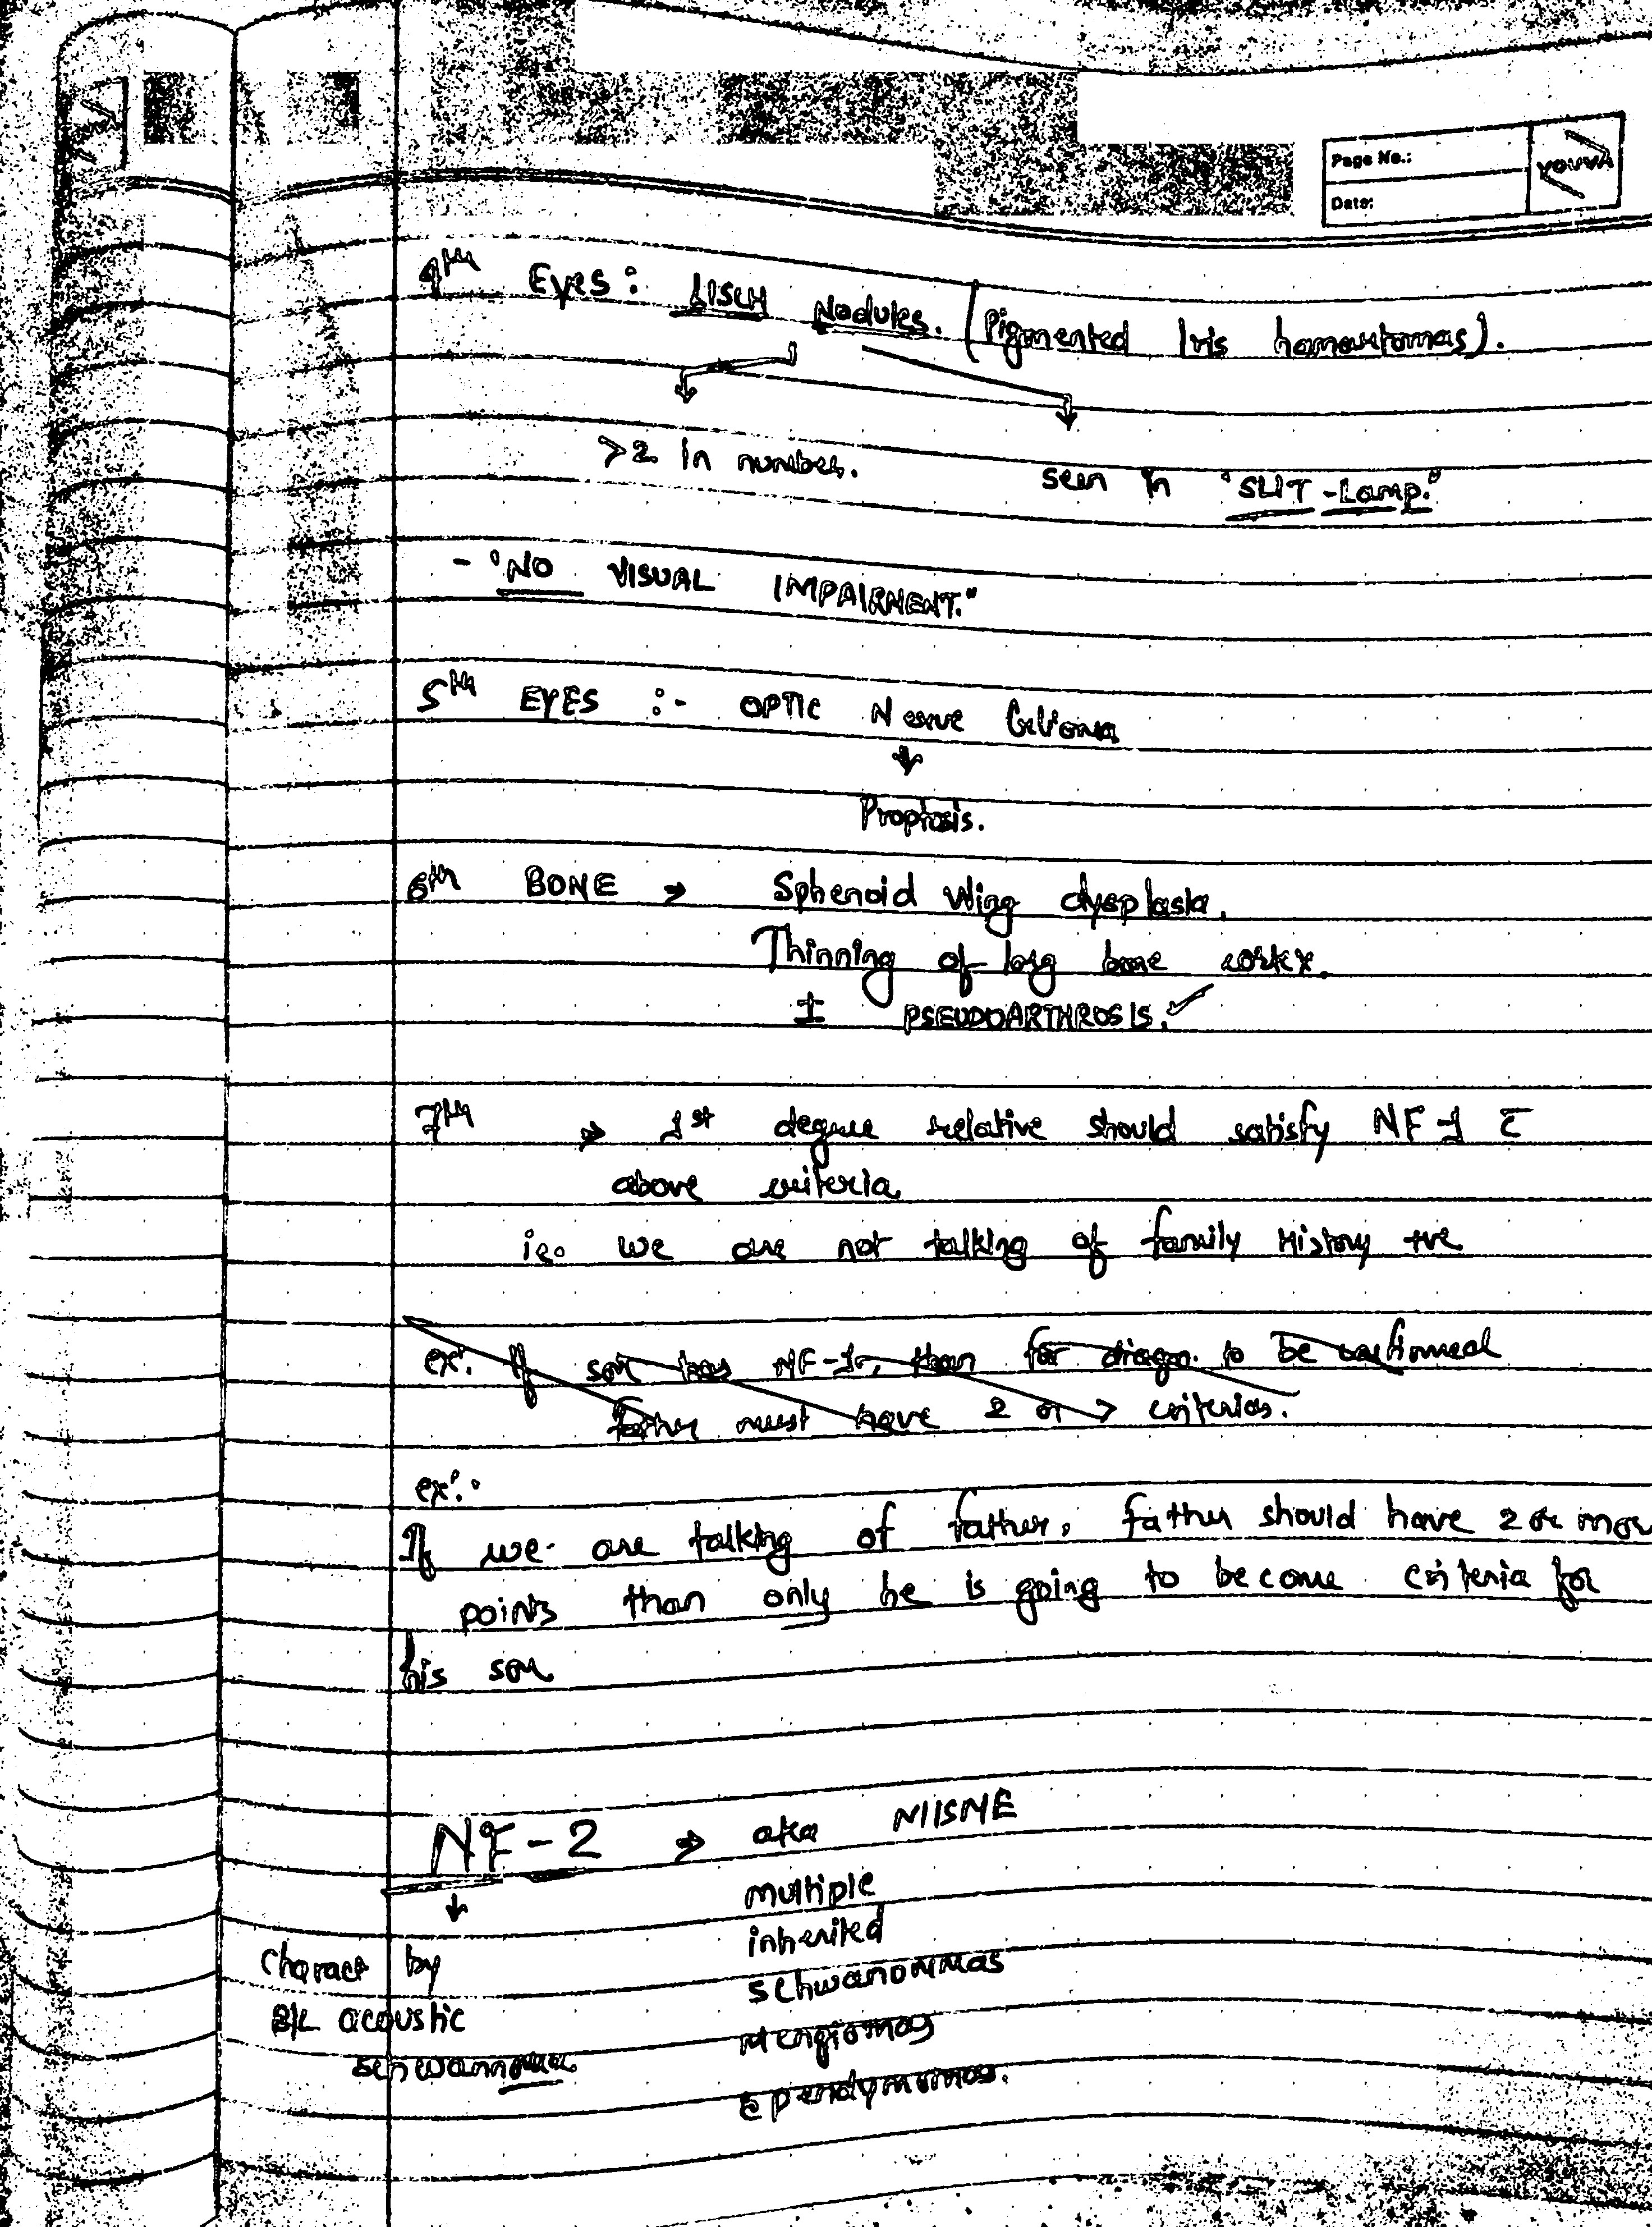 Page No.:
Date:
YOUVA
4th Eyes: LISCH Nodules. (Pigmented Iris hamartomas).
>2 in number.
seen in "SLIT-Lamp."
- "NO VISUAL IMPAIRMENT."
5th EYES :- OPTIC Nerve Glioma
↓
Proptosis.
6th BONE → Sphenoid Wing dysplasia.
Thinning of long bone cortex.
± PSEUDOARTHROSIS. ✓
7th ⇒ 1st degree relative should satisfy NF-1 c̅
above criteria
ie. we are not talking of family History +ve
ex: If son has NF-1, than for diagn. to be confirmed
father must have 2 or > criterias.
ex:.
If we are talking of father, father should have 2 or mor
points than only he is going to become criteria for
his son
NF-2 ⇒ aka MIISME
↓
multiple
inherited
schwanommas
Mengiomas
Ependymomas.
Charact by
B/L acoustic
schwannoma